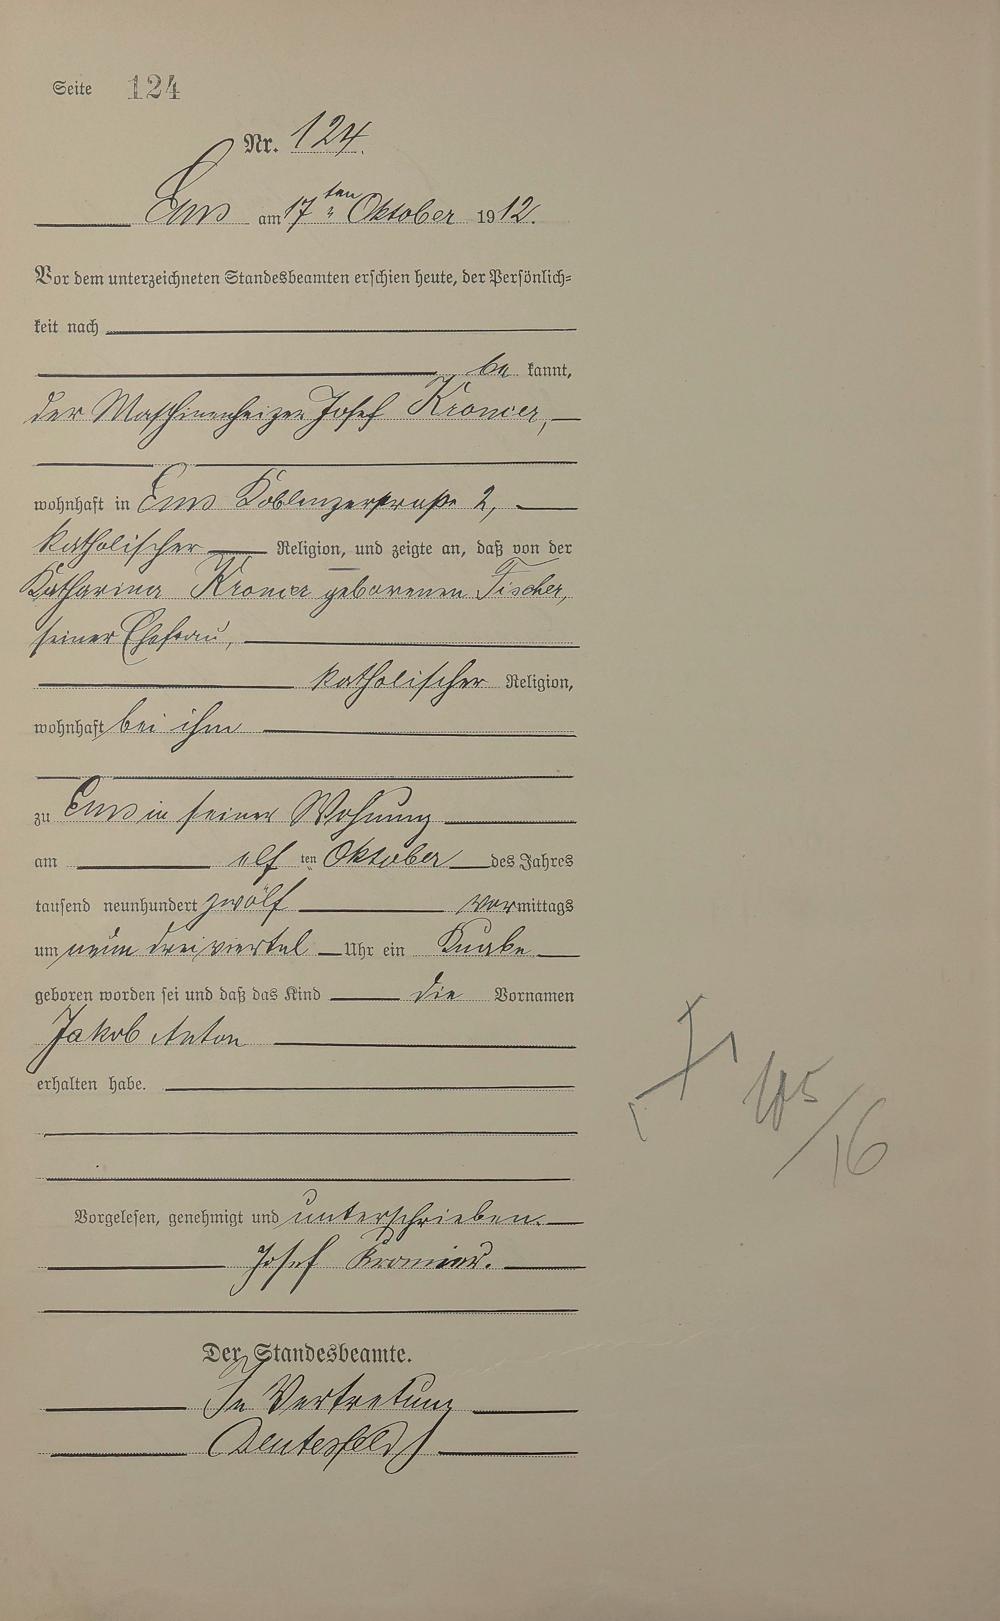 Seite 124
Nr. 124.
Ems am 17ten Oktober 1912.
Vor dem unterzeichneten Standesbeamten erschien heute, der Persönlich-
keit nach
be kannt,
der Maschinenheizer Josef Kromer,
wohnhaft in Ems Koblenzerstraße 2,
katholischer Religion, und zeigte an, daß von der
Katharina Kromer geborenen Fischer,
seiner Ehefrau,
katholischer Religion,
wohnhaft bei ihm
zu Ems in seiner Wohnung
am elf ten Oktober des Jahres
tausend neunhundert zwölf vormittags
um neun dreiviertel Uhr ein Knabe
geboren worden sei und daß das Kind die Vornamen
Jakob Anton
erhalten habe.
Vorgelesen, genehmigt und unterschrieben.
Josef
Der Standesbeamte.
In Vertretung